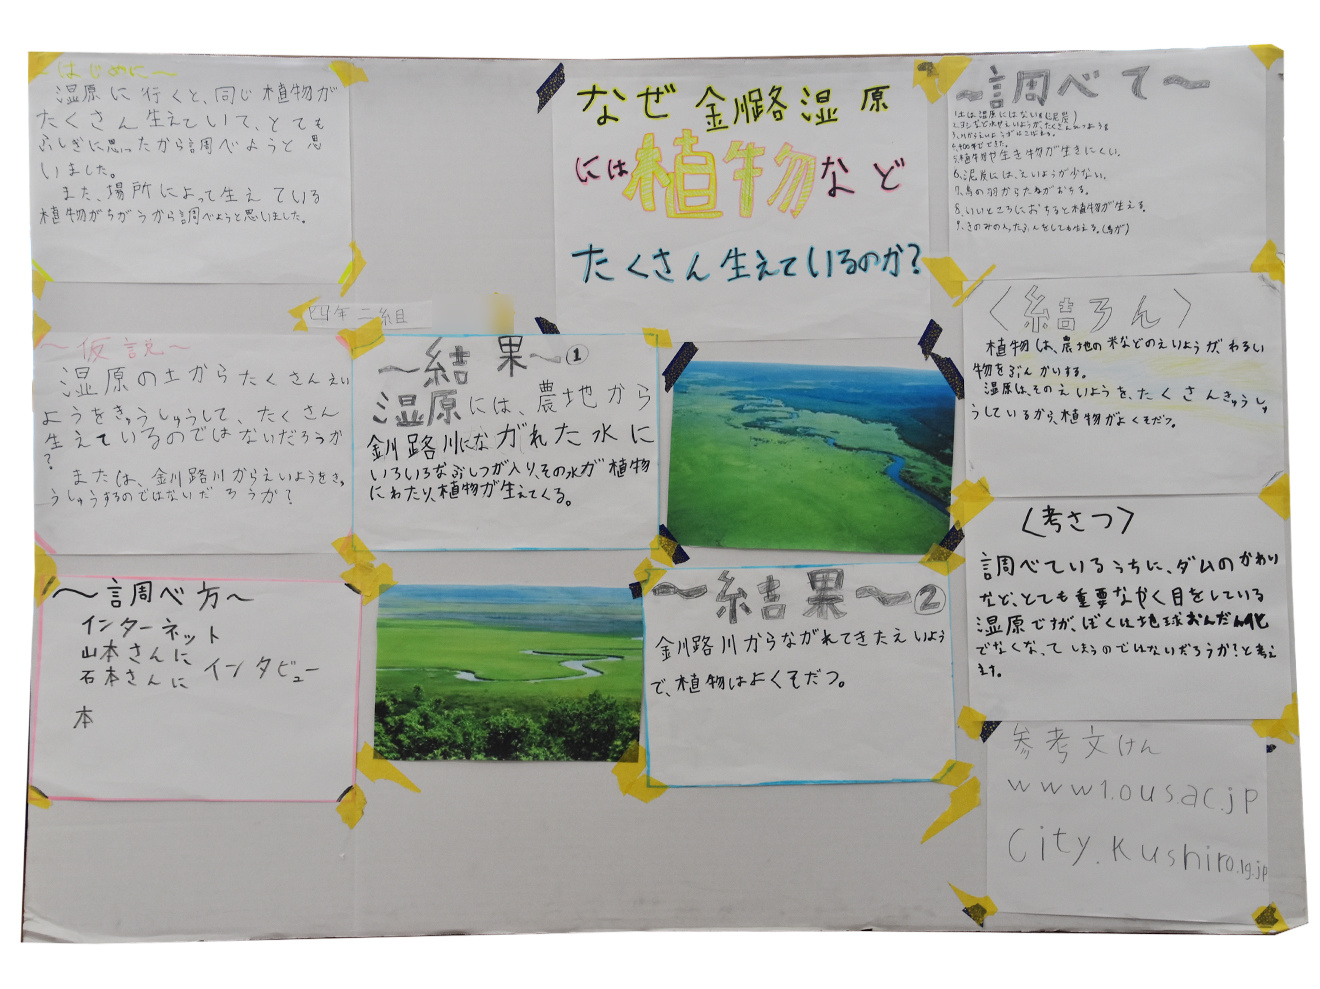 なぜ釧路湿原
には植物など
たくさん生えているのか?
~はじめに~
湿原に行くと、同じ植物が
たくさん生えていて、とても
ふしぎに思ったから調べようと思
いました。
また、場所によって生えている
植物がちがうから調べようと思いました。
四年二組
~仮説~
湿原の土からたくさんえい
ようをきゅうしゅうして、たくさん
生えているのではないだろうか
?
または、釧路川からえいようをきゅ
うしゅうするのではないだろうか?
~調べ方~
インターネット
山本さんに
石本さんに
インタビュー
本
~結果~①
湿原には、農地から
釧路川にながれた水に
いろいろなぶしつが入り、その水が植物
にわたり、植物が生えてくる。
~結果~②
釧路川からながれてきたえいよう
で、植物はよくそだつ。
~調べて~
1.土は湿原にはない
5.植物や生き物が生きにくい。
6.泥炭には、えいようが少ない。
7.鳥の羽からたねがおちる。
8.いいところにおちると植物が生える。
9.きのみの入ったふんをしても生える。(鳥が)
〈結ろん〉
植物は、農地の米などのえいようが、わるい
物をぶんかいする。
湿原は、そのえいようを、たくさんきゅうしゅ
うしているから、植物がよくそだつ。
〈考さつ〉
調べているうちに、ダムのかわり
など、とても重要なやく目をしている
湿原ですが、ぼくは地球おんだん化
でなくなってしまうのではないだろうか!と考え
ます。
参考文けん
www1.ous.ac.jp
City.Kushiro.lg.jp